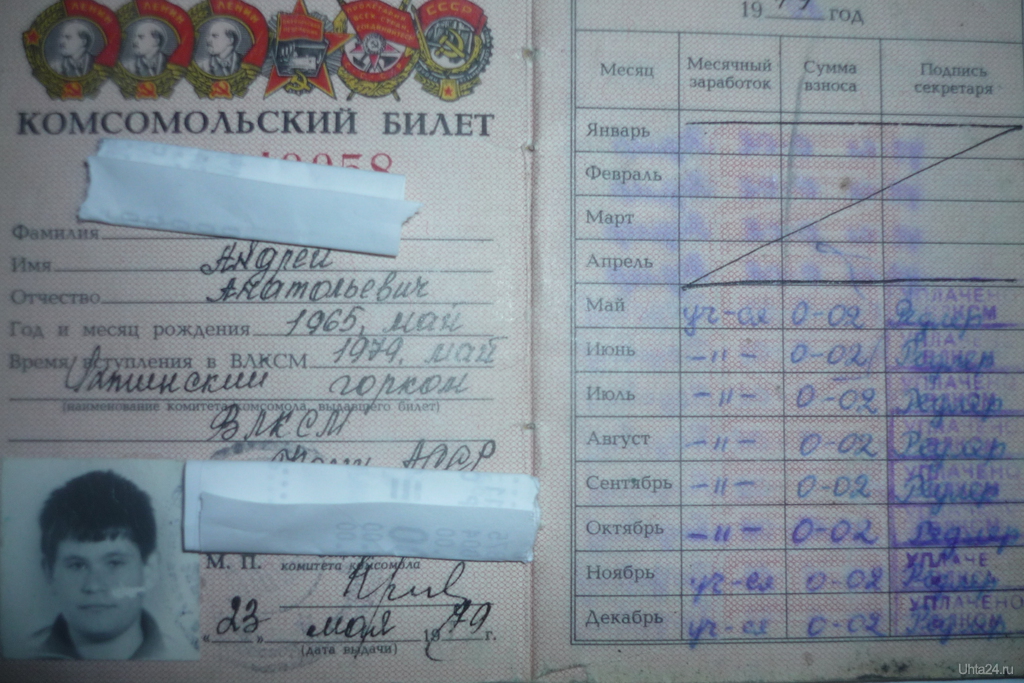 ЛЕНИН ЛЕНИН ЛЕНИН
СССР
КОМСОМОЛЬСКИЙ БИЛЕТ
Фамилия
Имя Андрей
Отчество Анатольевич
Год и месяц рождения 1965, май
Время вступления в ВЛКСМ 1979, май
горком
(наименование комитета комсомола, выдавшего билет)
ВЛКСМ
Коми АССР
М. П. комитета комсомола
"23" мая 1979 г.
(дата выдачи)
1979 год
Месяц Месячный заработок Сумма взноса Подпись секретаря
Январь
Февраль
Март
Апрель
Май уч-ся 0-02 УПЛАЧЕНО
Июнь -"- 0-02 УПЛАЧЕНО
Июль -"- 0-02 УПЛАЧЕНО
Август -"- 0-02 УПЛАЧЕНО
Сентябрь -"- 0-02 УПЛАЧЕНО
Октябрь -"- 0-02
Ноябрь уч-ся 0-02 УПЛАЧЕ
Декабрь уч-ся 0-02 УПЛАЧЕНО
Uhta24.ru